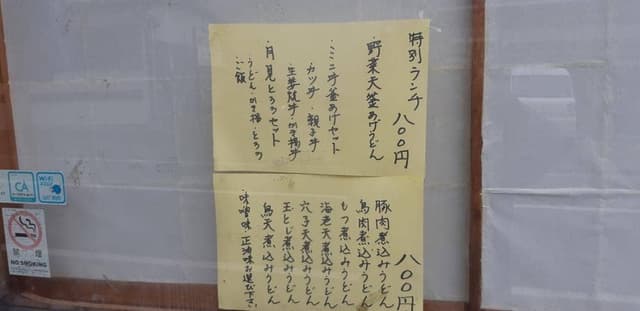 特別ランチ 八〇〇円
・野菜天釜あげうどん
・ミニ丼釜あげセット
カツ丼・親子丼
生姜焼丼・かき揚丼
・月見とろろセット
うどん・かき揚・とろろ
ご飯
八〇〇円
豚肉煮込みうどん
鳥肉煮込みうどん
もつ煮込みうどん
海老天煮込みうどん
穴子天煮込みうどん
玉とじ煮込みうどん
鳥天煮込みうどん
・味噌味・正油味お選び下さい
CA
Wi-Fi
禁煙
NO SMOKING